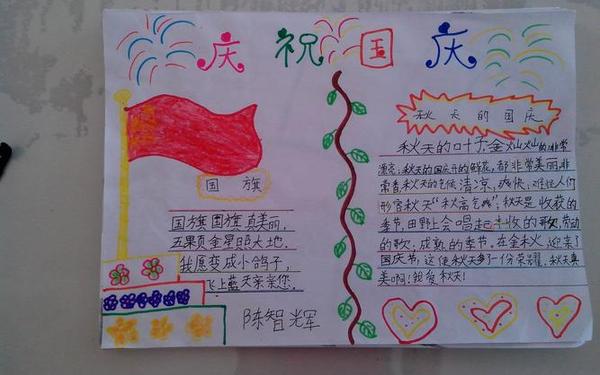 庆祝国庆
国旗
国旗国旗真美丽,
五果页金星照大地,
我愿变成小鸽子,
飞上蓝天亲亲您,
陈智辉
秋天的国庆
秋天的叶子金灿灿的非常
漂亮,秋天的国庆开的鲜花,都非常美丽非
常香秋天的气候清凉,爽快,难怪人们
形容秋天“秋高气爽”,秋天是收获的
季节,田野上会唱起丰收的歌,劳动
的歌,成熟的季节,在金秋迎来了
国庆节,这使秋天多了一份荣耀,秋天真
美啊!我爱秋天!